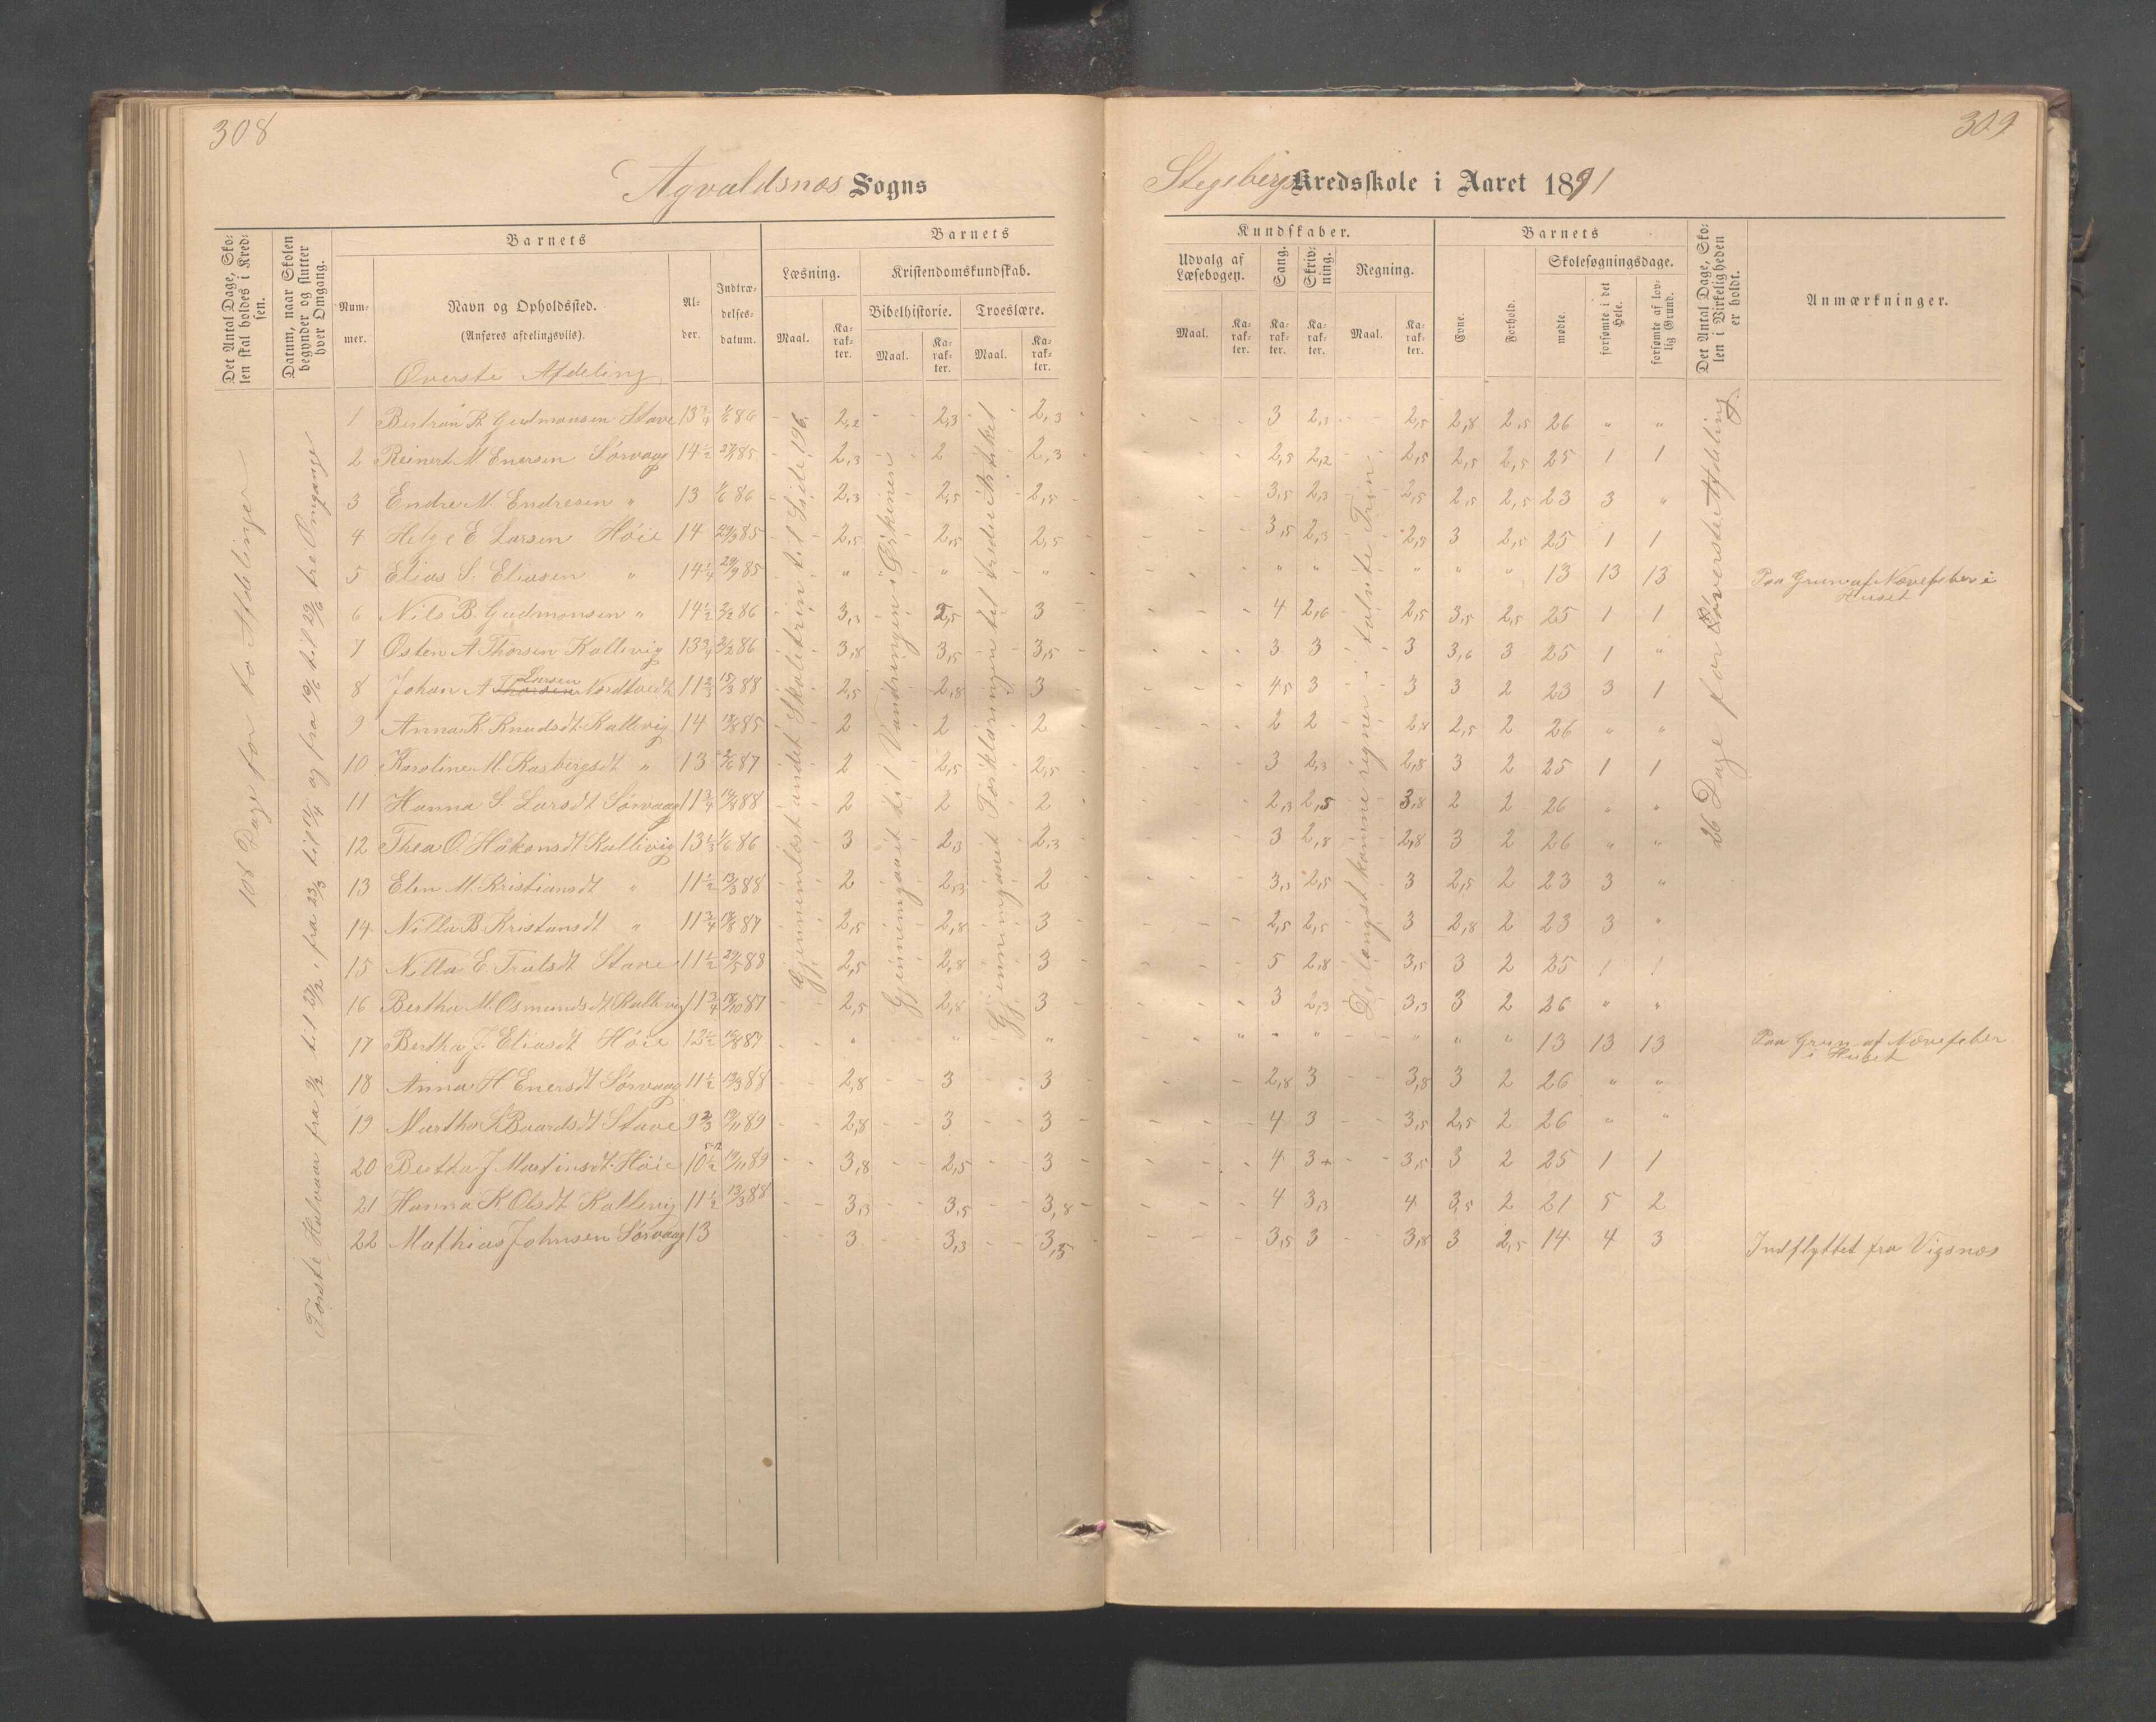 308
309
Agvaldsnæs Sogns
Stegebergs Kredsskole i Aaret 1891
Det Antal Dage, Sko-
len skal holdes i Kred-
sen.
Datum, naar Skolen
begynder og slutter
hver Omgang.
Barnets
Num-
mer.
Navn og Opholdssted.
(Anføres afdelingsviis).
Al-
der.
Indtræ-
delses-
datum.
Barnets
Læsning.
Maal.
Ka-
rak-
ter.
Kristendomskundskab.
Bibelhistorie.
Maal.
Ka-
rak-
ter.
Troeslære.
Maal.
Ka-
rak-
ter.
Kundskaber.
Udvalg af
Læsebogen.
Maal.
Ka-
rak-
ter.
Sang.
Ka-
rak-
ter.
Skriv-
ning.
Ka-
rak-
ter.
Regning.
Maal.
Ka-
rak-
ter.
Barnets
Evne.
Forhold.
Skolesøgningsdage.
mødte.
forsømte i det
Hele.
forsømte af lov-
lig Grund.
Det Antal Dage, Sko-
len i Virkeligheden
er holdt.
Anmærkninger.
Øverste Afdeling
108 Dage for to Afdelinger
Første Halvaar fra 9/2 til 27/2, fra 23/3 til 14/4 og fra 19/6 til 23/6 tre Omgange
Gjennemlæst andet Skoletrin til Side 196.
Gjennemgaaet til Vandringen i Ørkenen
Gjennemgaaet Forklaringen til tredie Artikel
De længst komne regner i talnite Trin
26 Dage for Øverste Afdeling
1 Bertran K Gudmonsen Stave 13 3/4 1/6 86 2,2 2,3 2,3 3 2,3 2,5 2,8 2,5 26 " "
2 Reinert M Enersen Sørvaag 14 1/2 27/4 85 2,3 2 2,3 2,5 2,2 2,5 2,5 2,5 25 1 1
3 Endre M. Endresen " 13 1/6 86 2,3 2,5 2,5 3,5 2,3 2,5 2,5 2,5 23 3 "
4 Helge E Larsen Høie 14 29/9 85 2,5 2,5 2,5 3,5 2,3 2,5 3 2,5 25 1 1
5 Elias S. Eliasen " 14 1/4 29/9 85 " " " " " " " " 13 13 13 Paa Grun af Nævefeber i
Huset
6 Nils B. Gudmonsen " 14 1/2 2/2 86 3,3 2,5 3 4 2,6 2,5 3,5 2,5 25 1 1
7 Østen A Thorsen Kallevig 13 3/4 2/2 86 3,8 3,5 3,5 3 3 3 3,6 3 25 1 "
8 Johan A Larsen Nordtvedt 11 2/3 15/3 88 2,5 2,8 3 4,5 3 3 3 2 23 3 1
9 Anna K. Knudsdt. Kallevig 14 19/8 85 2 2 2 2 2 2,8 2,5 2 26 " "
10 Karoline M. Rasbergsdt " 13 2/6 87 2 2,5 2,5 3 2,3 2,8 3 2 25 1 1
11 Hanna S. Larsdt Sørvaag 11 3/4 14/3 88 2 2 2 2,3 2,5 3,8 2 2 26 " "
12 Thea O. Håkonsdt Kallevig 13 1/3 1/6 86 3 2,3 2,3 3 2,8 2,8 3 2 26 " "
13 Elen M. Kristiansdt " 11 1/2 13/3 88 2 2,3 2 3,3 2,5 3 2,5 2 23 3 "
14 Nilla B. Kristansdt " 11 3/4 18/8 87 2,5 2,8 3 2,5 2,5 3 2,8 2 23 3 "
15 Nilla E Trulsdt Stave 11 1/2 29/5 88 2,5 2,8 3 5 2,8 3,5 3 2 25 1 1
16 Bertha M. Osmundsdt Kallevig 11 3/4 18/10 87 2,5 2,8 3 3 2,3 3,3 3 2 26 " "
17 Bertha J Eliasdt Høie 12 1/2 16/8 87 " " " " " " " " 13 13 13 Paa Grun af Nævefeber
i Huset
18 Anna H Enersdt Sørvaag 11 1/2 13/3 88 2,8 3 3 2,8 3 3,8 3 2 26 " "
19 Martha S Baardsdt Stave 9 2/3 19/11 89 2,8 3 3 4 3 3,5 2,5 2 26 " "
20 Bertha J Martinsdt. Høie 10 1/2 19/11 89 3,8 2,5 3 4 3+ 3,5 3 2 25 1 1
21 Hanna K. Olsdt Kallevig 11 1/2 13/3 88 3,3 3,5 3,8 4 3,3 4 3,5 2 21 5 2
22 Mathias Johnsen Sørvaag 13 3 3,3 3,5 3,5 3 3,8 3 2,5 14 4 3 Indflyttet fra Vigsnæs